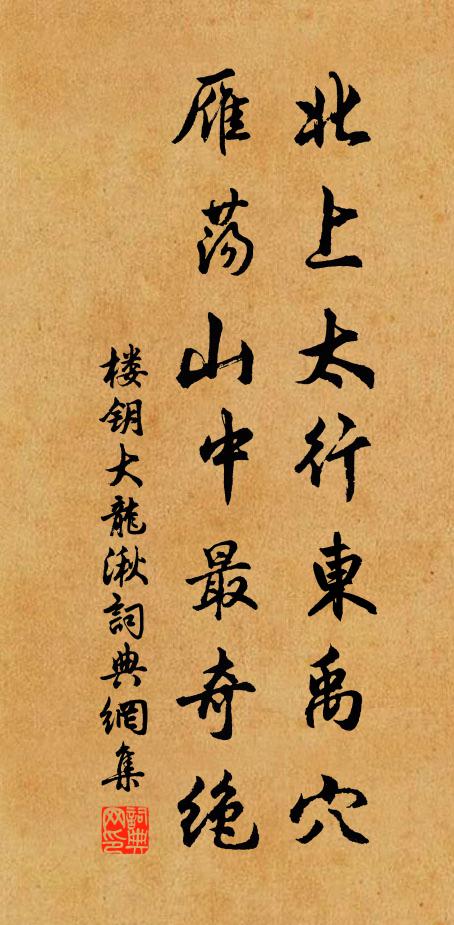 北上太行東禹穴
雁荡山中最奇绝
楼钥大龍湫詞典網集
詞典網印